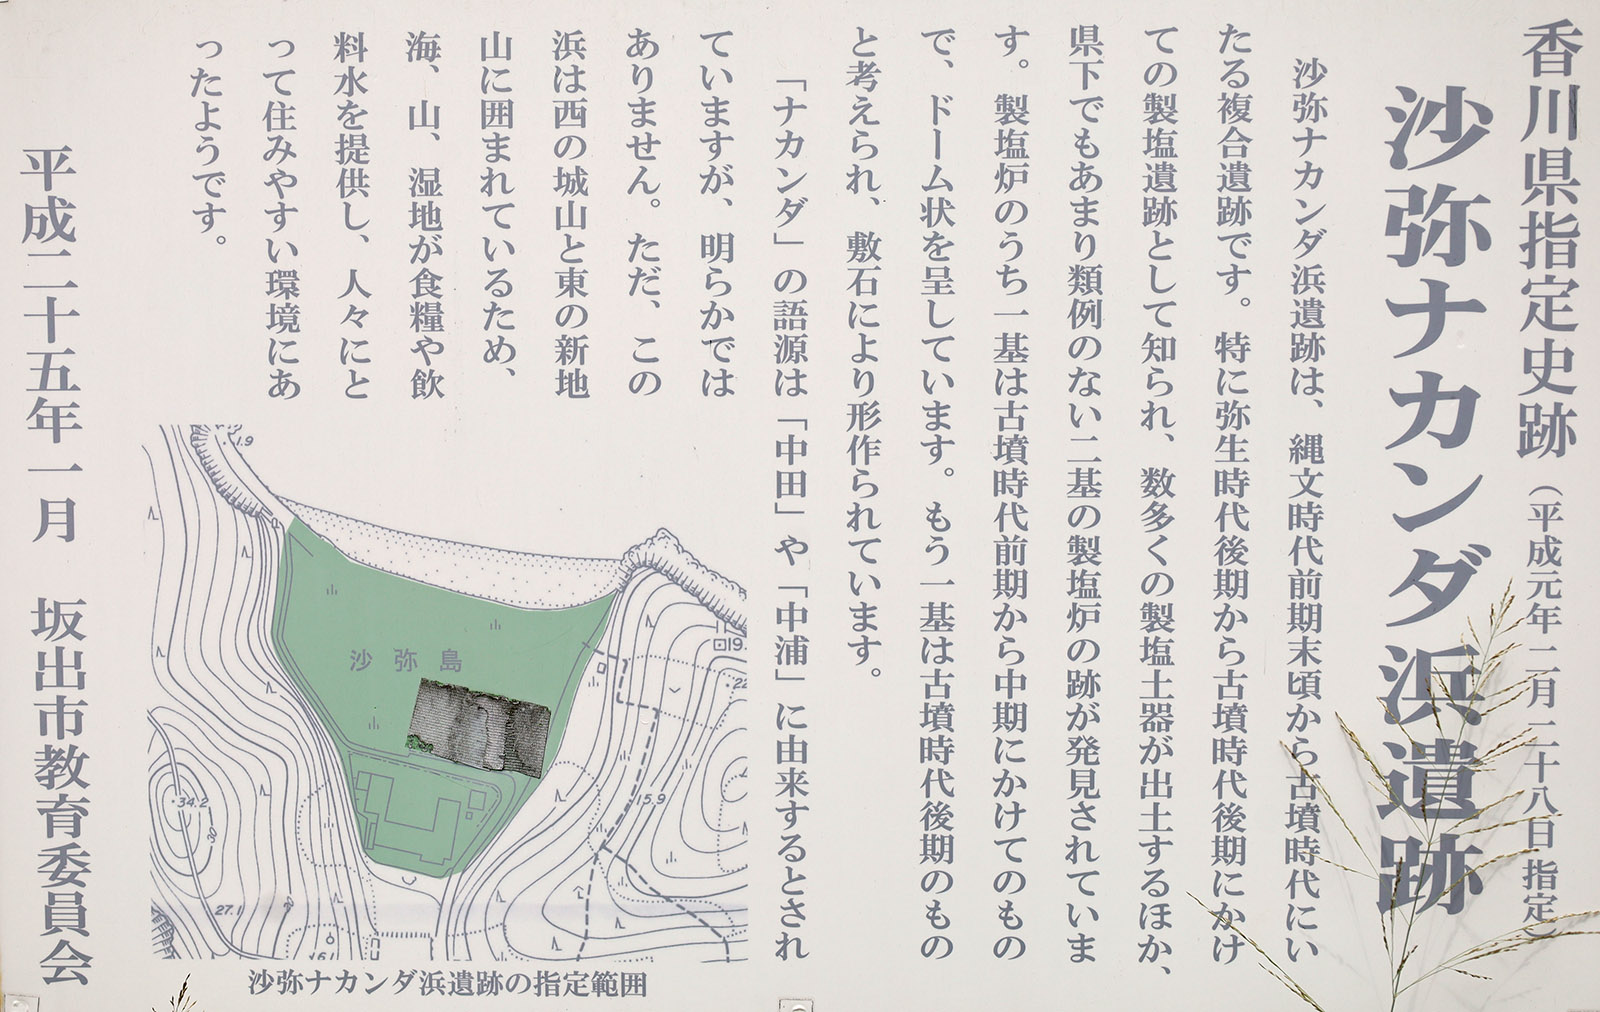 香川県指定史跡(平成元年二月二十八日指定)
沙弥ナカンダ浜遺跡
沙弥ナカンダ浜遺跡は、縄文時代前期末頃から古墳時代にい
たる複合遺跡です。特に弥生時代後期から古墳時代後期にかけ
ての製塩遺跡として知られ、数多くの製塩土器が出土するほか、
県下でもあまり類例のない二基の製塩炉の跡が発見されていま
す。製塩炉のうち一基は古墳時代前期から中期にかけてのもの
で、ドーム状を呈しています。もう一基は古墳時代後期のもの
と考えられ、敷石により形作られています。
「ナカンダ」の語源は「中田」や「中浦」に由来するとされ
ていますが、明らかでは
ありません。ただ、この
浜は西の城山と東の新地
山に囲まれているため、
海、山、湿地が食糧や飲
料水を提供し、人々にと
って住みやすい環境にあ
ったようです。
平成二十五年一月 坂出市教育委員会
1.9
沙弥島
19.
22
15.9
34.2
30
27.1
16.1
沙弥ナカンダ浜遺跡の指定範囲